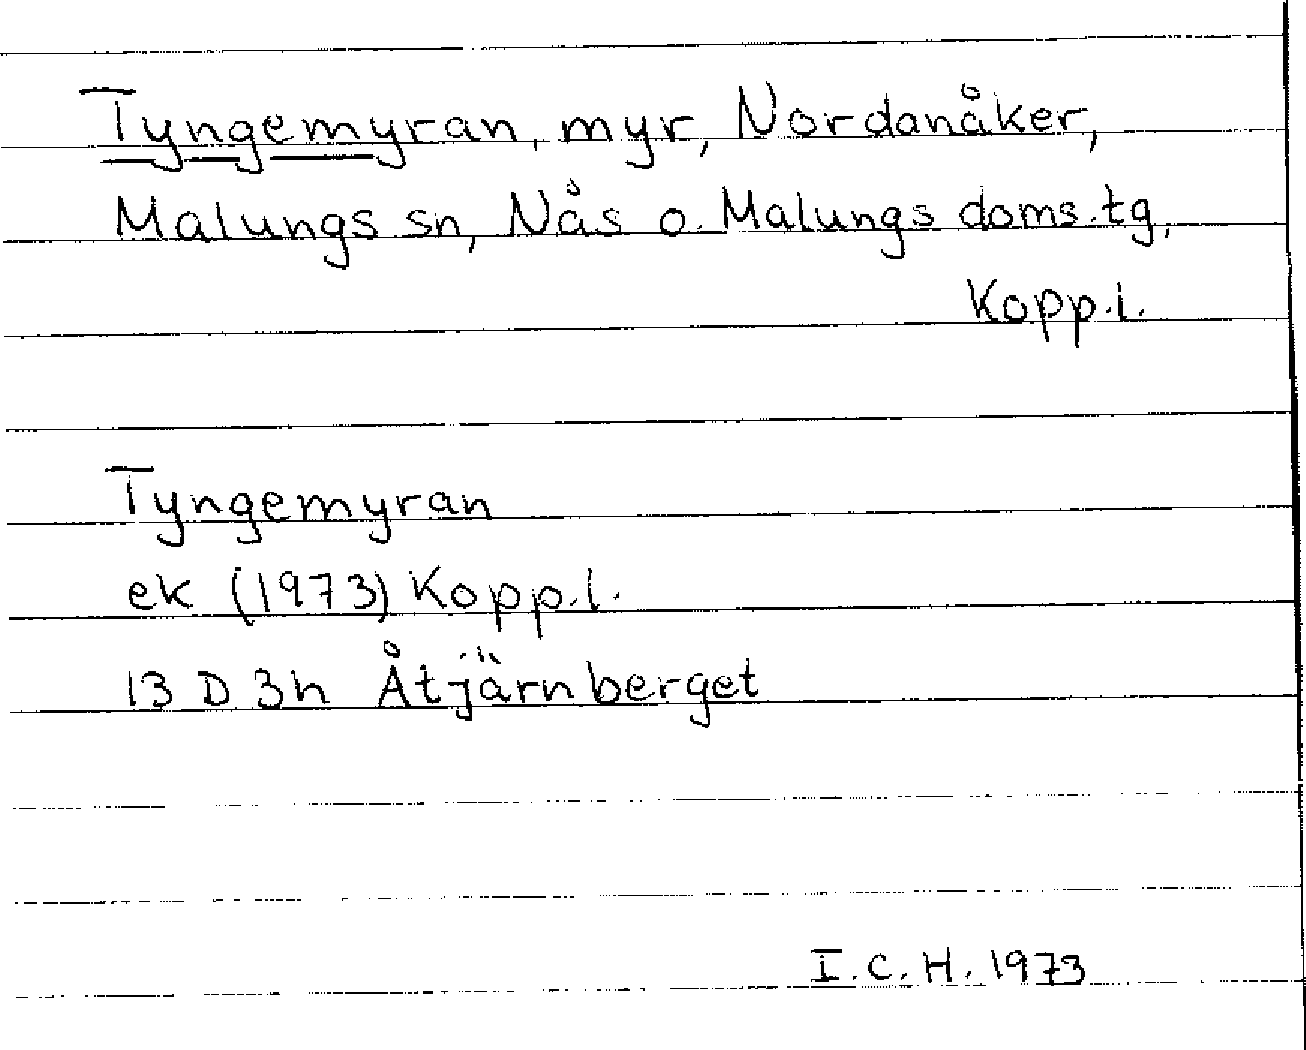 Tyngemyran, myr, Nordanåker,
Malungs sn, Nås o. Malungs doms.tg,
Kopp.l.
Tyngemyran
ek (1973) Kopp.l.
13 D 3h Åtjärnberget
I.C.H. 1973